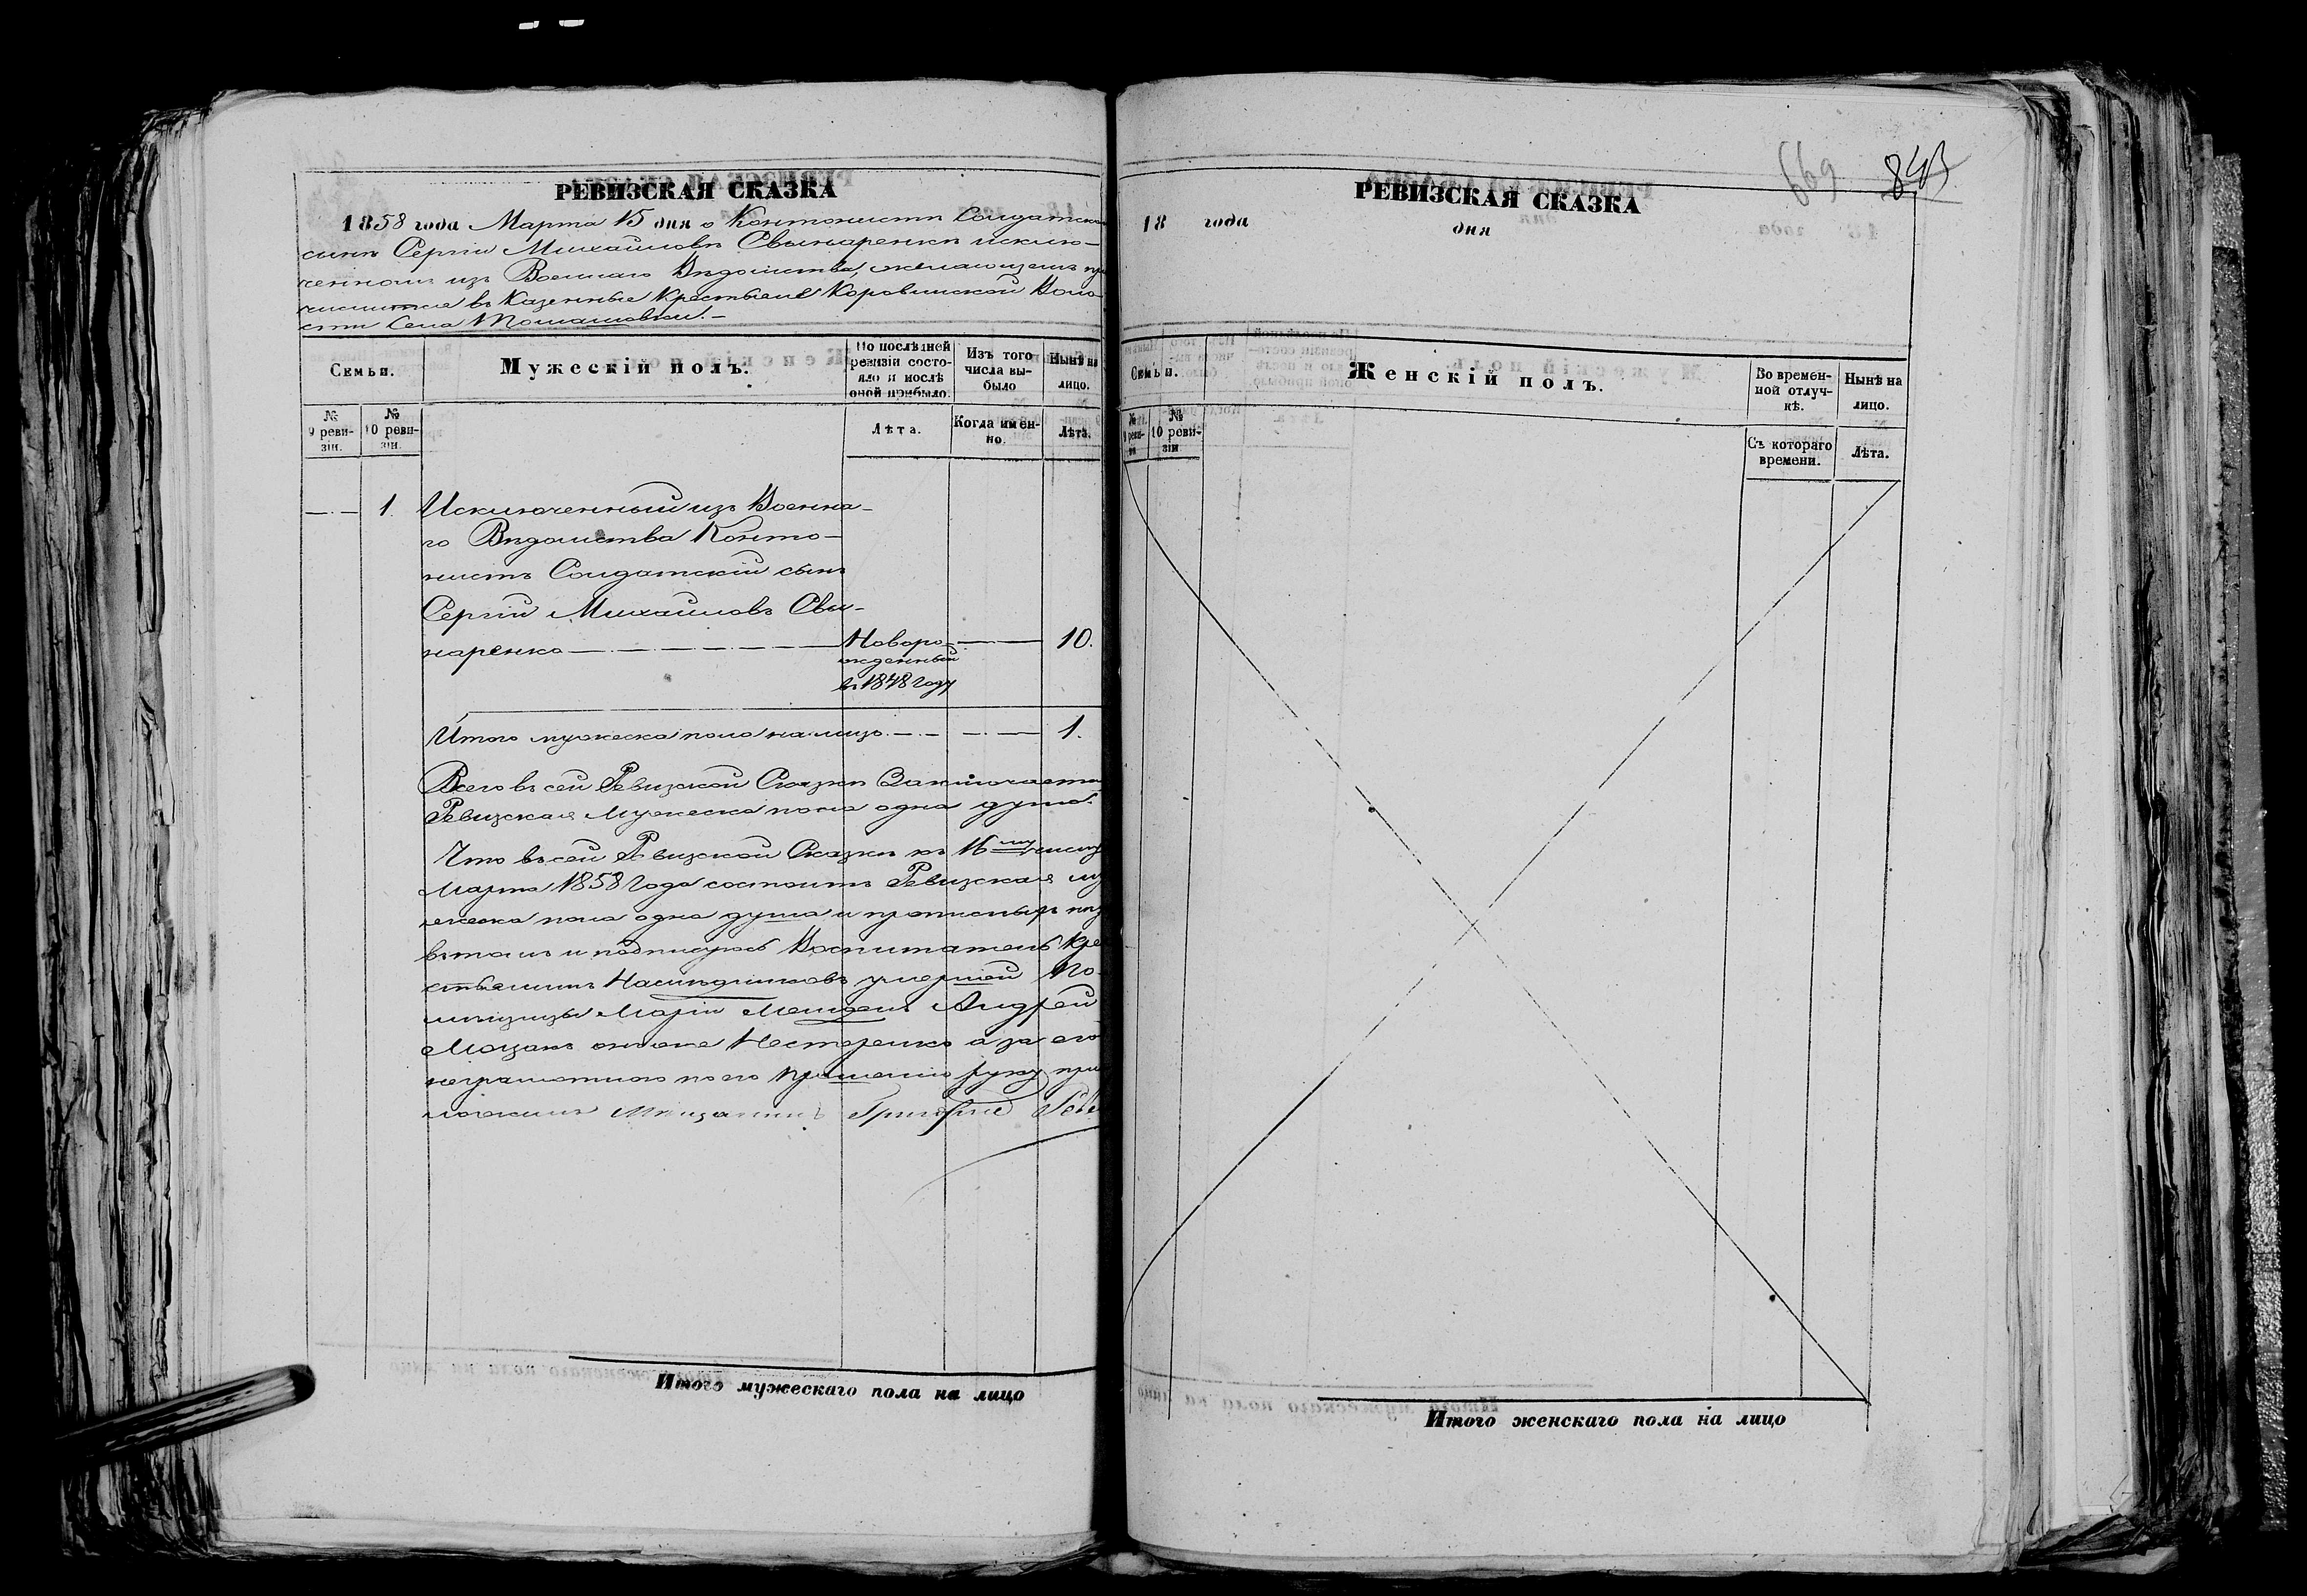 РЕВИЗСКАЯ СКАЗКА
1858 года Марта 15 дня о Контонисть Солдатско
сынь Сергіи Михайловь Свынаренкь исклю-
ченномъ изъ Военнаго Вѣдомства, желающемъ при
числится въ Казенные Крестьяне Коровинской Воло
сти Села Томашовки. –
Семьи.
Мужескій полъ.
По послѣдней ревизіи состояло и послѣ оной прибыло.
Изъ того числа выбыло
Нынѣ на лицо.
№ 9 ревизіи.
№ 10 ревизіи.
Лѣта.
Когда именно.
Лѣта.
1. Исключенный изъ Военна-
го Вѣдомства Конто-
нистъ Солдатскій сынъ
Сергій Михайловъ Сви-
наренко
Новоро-
жденный
въ 1848 году
10.
Итого мужеска пола на лицо 1.
Всего въ сей Ревизской Сказки Заключается
Ревизская Мужеска пола одна душа.
Что въ сей Ревизской Сказкѣ къ 16му числу
Марта 1858 года состоитъ Ревизская му
жеска пола одна душа и прописныхъ
въ томъ и подписуюсь Воспитатель Кре
стьянинъ Наслѣдниковъ умершей По-
мѣщицы Маріи Андрей
Моцакъ онъ же Нестеренко а за его
неграмотного по его прошенію руку при
ложилъ Мѣщанинъ Григорій
Итого мужескаго пола на лицо
669 843
РЕВИЗСКАЯ СКАЗКА
18 года дня
Семьи.
Женскій полъ.
Во временной отлучкѣ.
Нынѣ на лицо.
№ 9 ревизіи
№ 10 ревизіи
Съ котораго времени.
Лѣта.
Итого женскаго пола на лицо